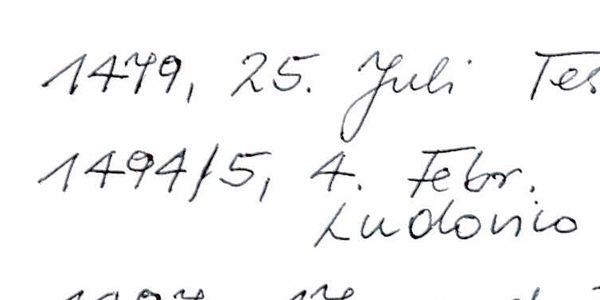 1479, 25. Juli Tes
1494/5, 4. Febr.
Ludovico